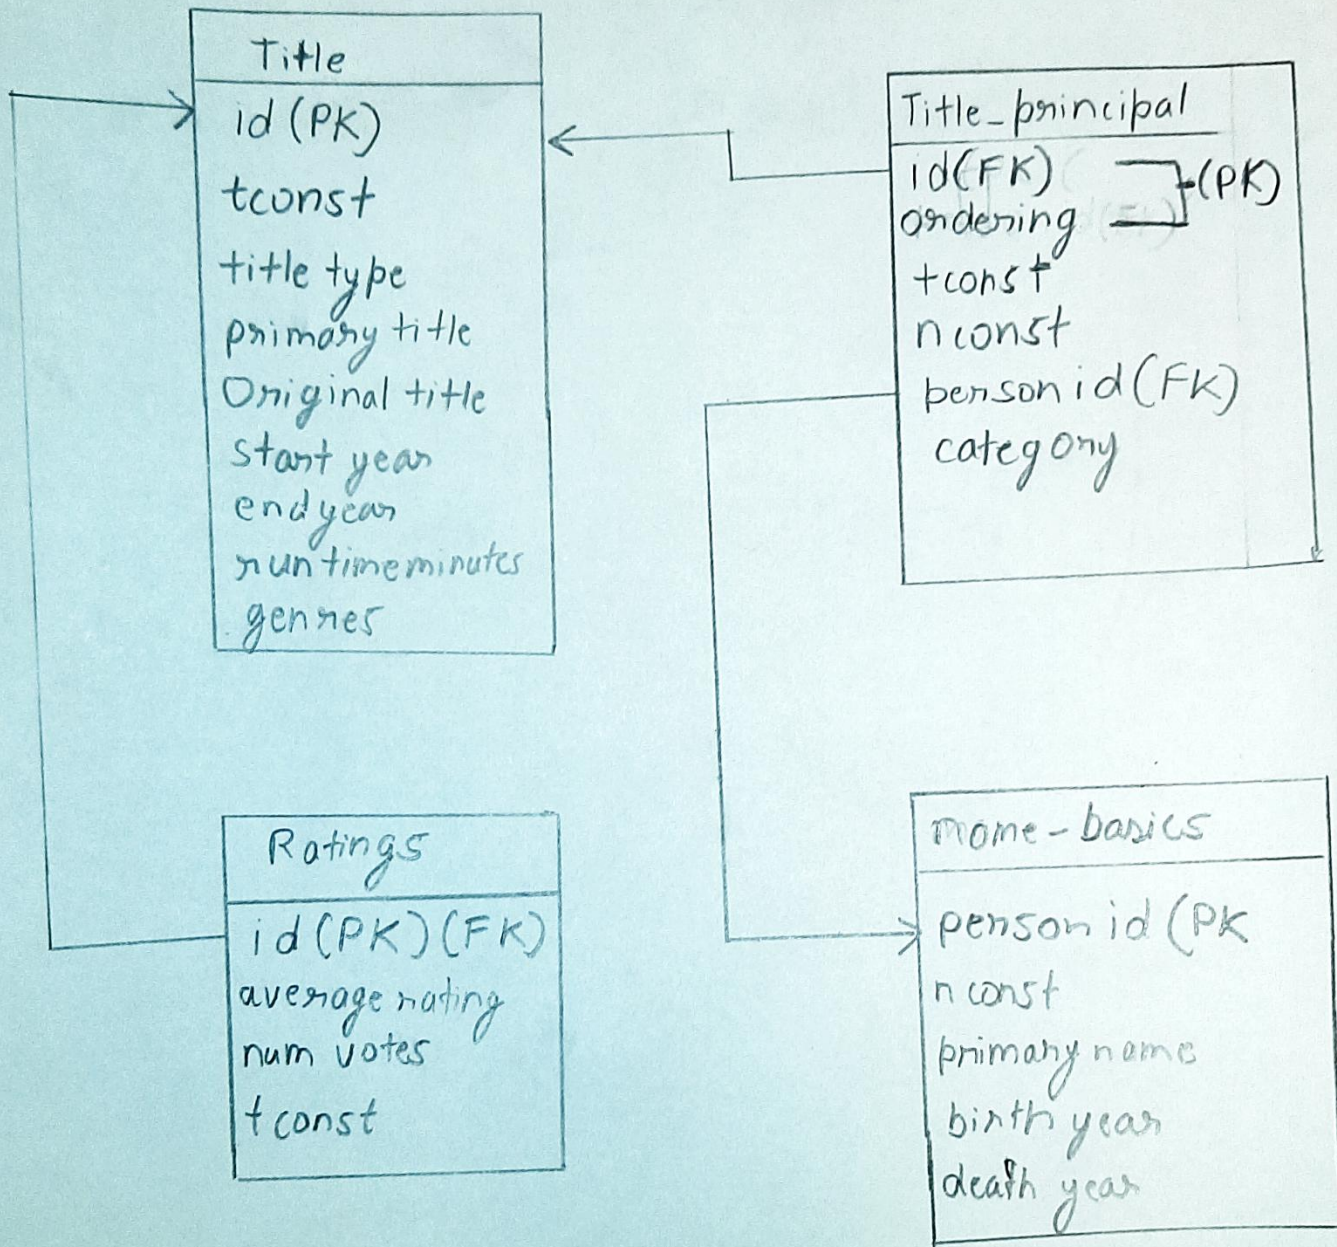 Title
id (PK)
tconst
title type
primary title
Original title
start year
endyear
runtimeminutes
genres
Title_principal
id(FK)
ordering
(PK)
tconst
nconst
person id (FK)
category
Ratings
id (PK) (FK)
average rating
num votes
tconst
name-basics
person id (PK
nconst
primary name
birth year
death year